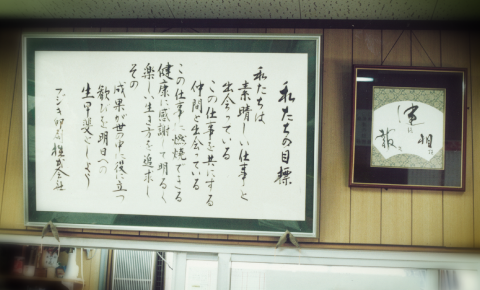 私たちの目標
私たちは
素晴しい仕事と
出会っている
この仕事を共にする
仲間と出会っている
この仕事に燃焼できる
健康に感謝して明るく
楽しい生き方を追求し
その
成果が世の中に役に立つ
歓びを明日への
生甲斐としよう